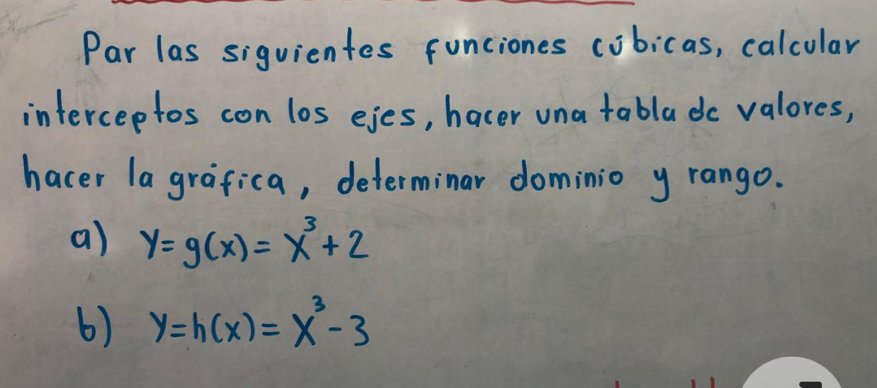 Par las siguientes funciones cúbicas, calcular
interceptos con los ejes, hacer una tabla de valores,
hacer la gráfica, determinar dominio y rango.
a) y=g(x)= x³+2
b) y=h(x)= x³-3